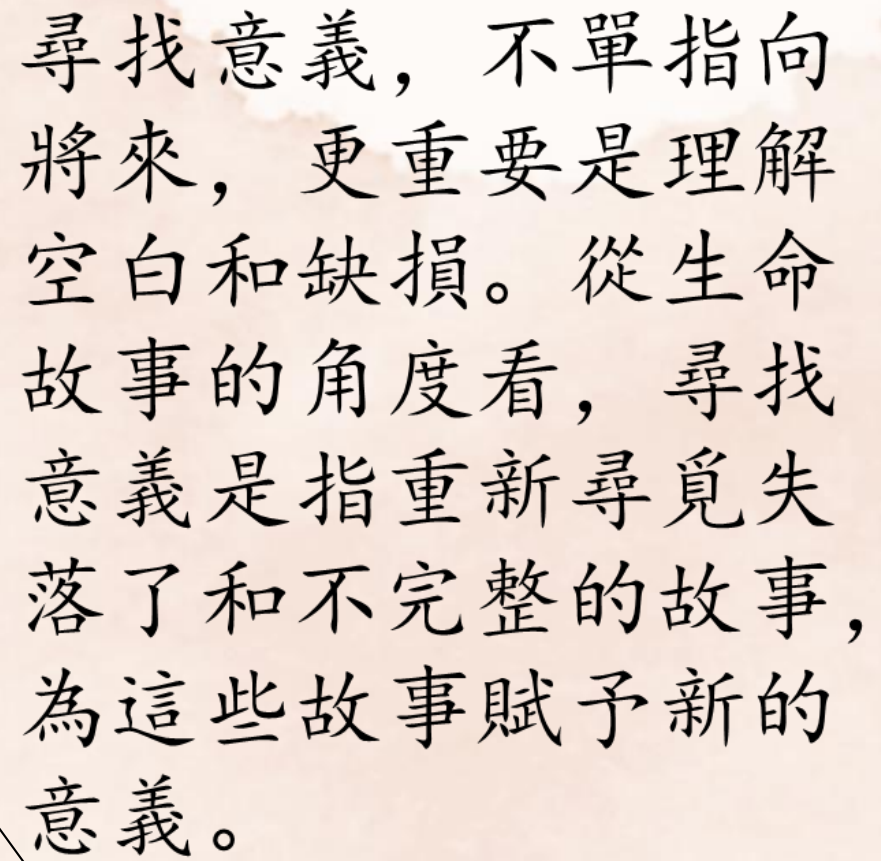 尋找意義，不單指向
將來，更重要是理解
空白和缺損。從生命
故事的角度看，尋找
意義是指重新尋覓失
落了和不完整的故事，
為這些故事賦予新的
意義。